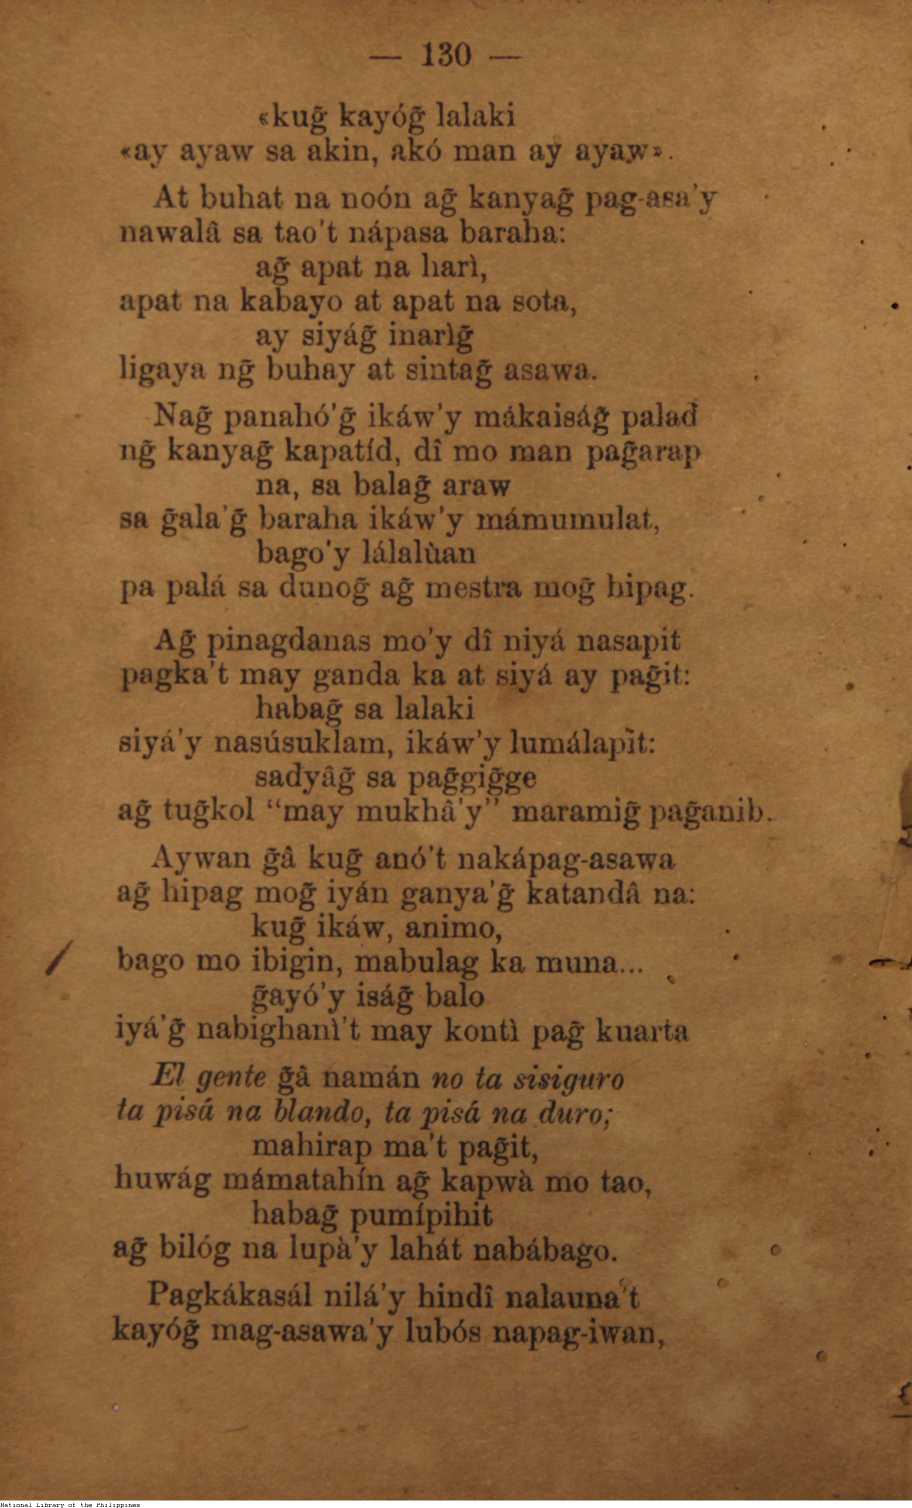 — 130 —
«kug̃ kayóg̃ lalaki
«ay ayaw sa akin, akó man ay ayaw».
At buhat na noón ag̃ kanyag̃ pag-asa'y
nawalâ sa tao't nápasa baraha:
ag̃ apat na harì,
apat na kabayo at apat na sota,
ay siyág̃ inarìg̃
ligaya ng̃ buhay at sintag̃ asawa.
Nag̃ panahó'g̃ ikáw'y mákaiság̃ palad
ng̃ kanyag̃ kapatíd, dî mo man pag̃arap
na, sa balag̃ araw
sa g̃ala'g̃ baraha ikáw'y mámumulat,
bago'y lálalùan
pa palá sa dunog̃ ag̃ mestra mog̃ hipag.
Ag̃ pinagdanas mo'y dî niyá nasapit
pagka't may ganda ka at siyá ay pag̃it:
habag̃ sa lalaki
siyá'y nasúsuklam, ikáw'y lumálapìt:
sadyâg̃ sa pag̃gig̃ge
ag̃ tug̃kol “may mukhâ'y” maramig̃ pag̃anib.
Aywan g̃â kug̃ anó't nakápag-asawa
ag̃ hipag mog̃ iyán ganya'g̃ katandâ na:
kug̃ ikáw, animo,
bago mo ibigin, mabulag ka muna...
g̃ayó'y iság̃ balo
iyá'g̃ nabighanì't may kontì pag̃ kuarta
El gente g̃â namán no ta sisiguro
ta pisá na blando, ta pisá na duro;
mahirap ma't pag̃it,
huwág mámatahín ag̃ kapwà mo tao,
habag̃ pumípihit
ag̃ bilóg na lupà'y lahát nabábago.
Pagkákasál nilá'y hindî nalauna't
kayóg̃ mag-asawa'y lubós napag-iwan,
National Library of the Philippines